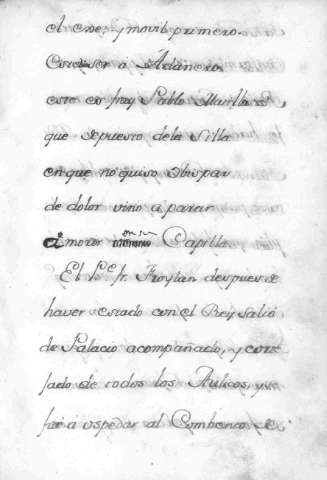 el exe, y movil primero.
este es fray Pablo Murilla
que depuesto de la Silla
en que no quiso obispar
de dolor vino a parar
a morir en su Capilla.
El P.e fr. Froylan despues de
haver estado con el Rey salió
de Palacio acompañado, y corte
jado de todos los Aulicos, y se
fue a ospedar al Combento de